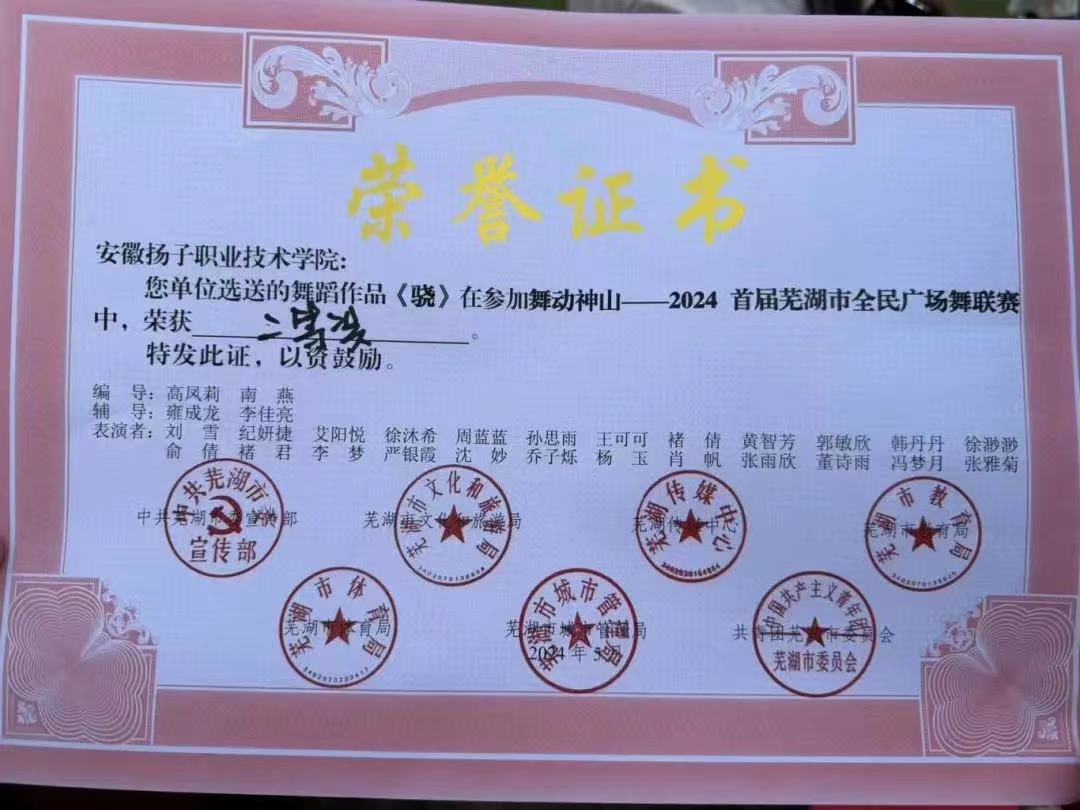 荣誉证书
安徽扬子职业技术学院：
您单位选送的舞蹈作品《骁》在参加舞动神山——2024 首届芜湖市全民广场舞联赛
中，荣获 二等奖 。
特发此证，以资鼓励。
编 导：高凤莉 南 燕
辅 导：雍成龙 李佳亮
表演者：刘 雪 纪妍捷 艾阳悦 徐沐希 周蓝蓝 孙思雨 王可可 褚 倩 黄智芳 郭敏欣 韩丹丹 徐渺渺
俞 倩 褚 君 李 梦 严银霞 沈 妙 乔子烁 杨 玉 肖 帆 张雨欣 董诗雨 冯梦月 张雅菊
中共芜湖市委宣传部 芜湖市文化和旅游局 芜湖传媒中心 芜湖市教育局
中共芜湖市 宣传部
芜湖市文化和旅游局
芜湖传媒中心
芜湖市教育局
芜湖市体育局 芜湖市城市管理局 共青团芜湖市委员会
2024年5月
芜湖市体育局
芜湖市城市管理局
中国共产主义青年团
芜湖市委员会